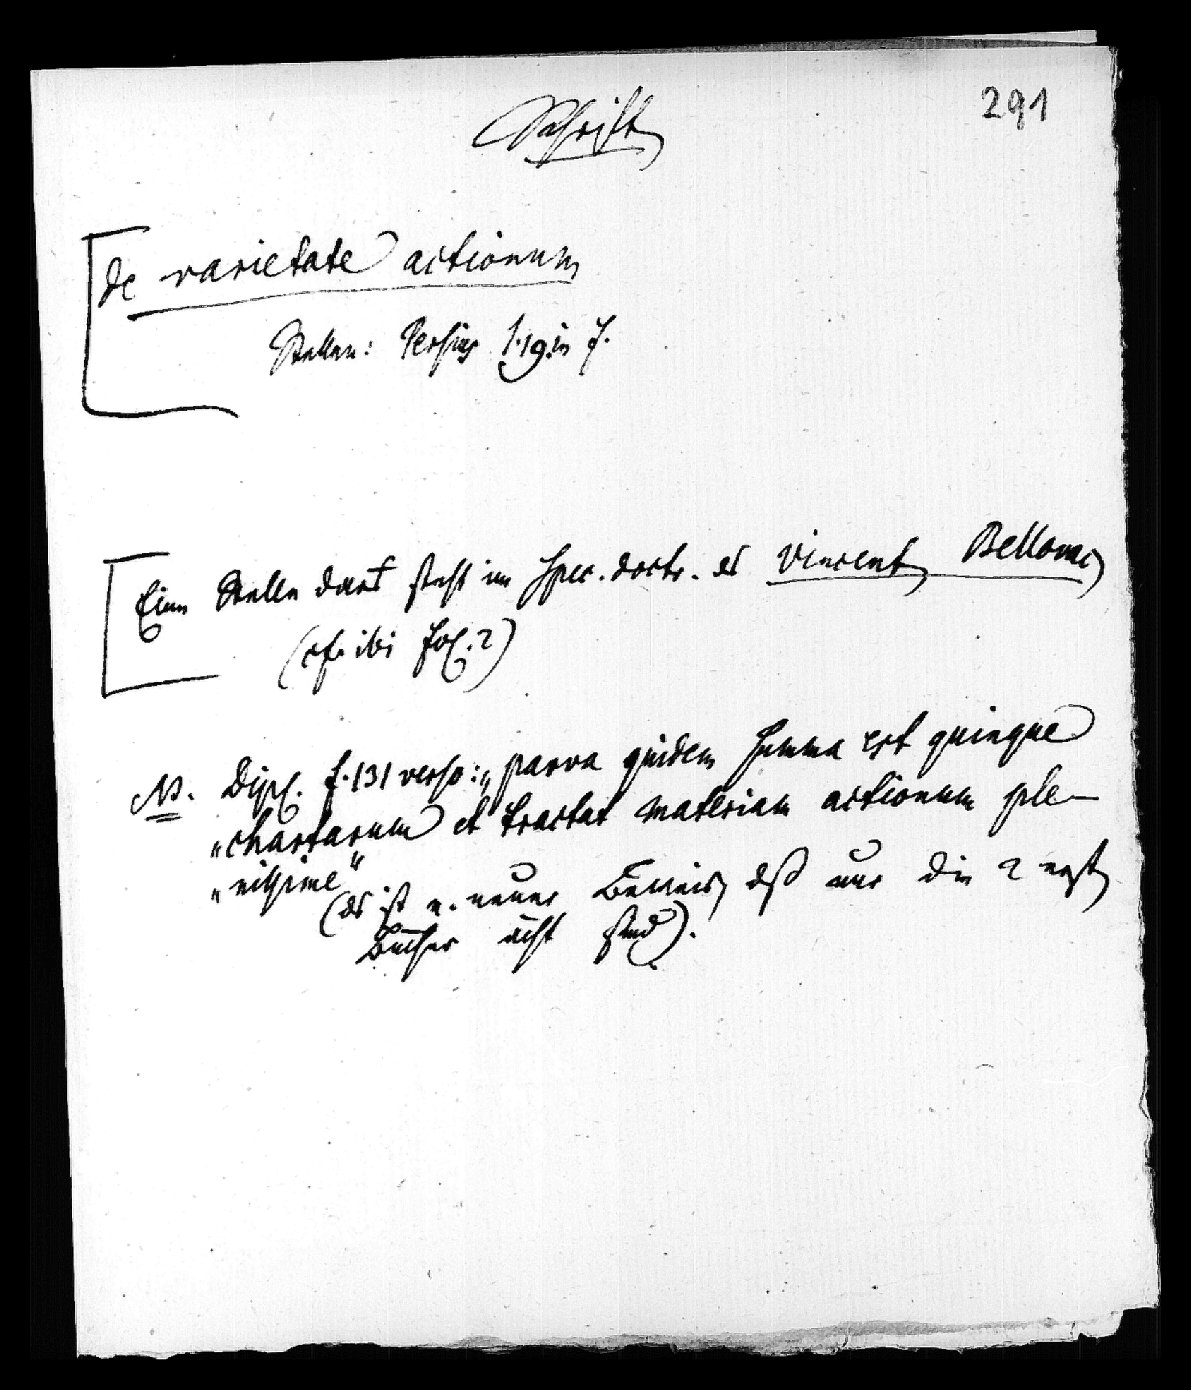 291
Schrift
de varietate actionum
Stellen: Persius 1.19. in f.
Eine Stelle daraus steht im Spec. doctr. des Vincent. Bellovac.
(cf. ibi fol. 2)
NB. f. 131 verso: „parva quidem summa est quinque
„chartarum et tractat materiam actionum ple-
„nissime“
(das ist e. neuer Beweis, daß nur die 2 ersten
Bücher ächt sind).